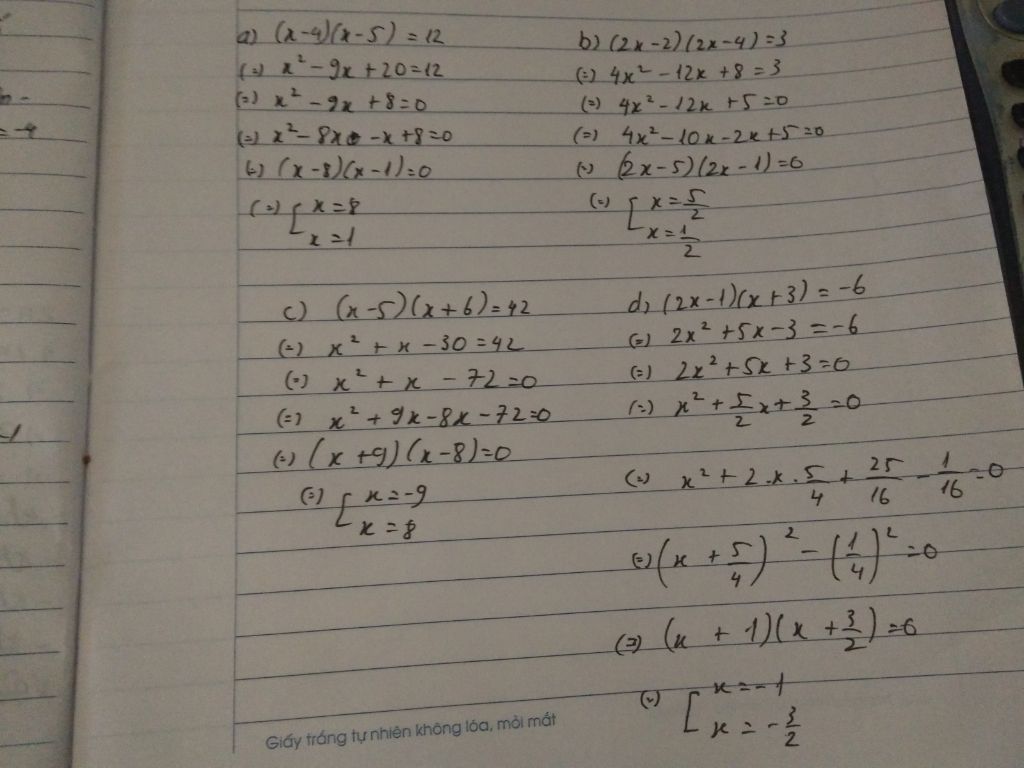 a) (x-4)(x-5) = 12
(=) x² - 9x + 20 = 12
(=) x² - 9x + 8 = 0
(=) x² - 8x - x + 8 = 0
(=) (x-8)(x-1) = 0
(=) [ x = 8
x = 1
b) (2x-2)(2x-4) = 3
(=) 4x² - 12x + 8 = 3
(=) 4x² - 12x + 5 = 0
(=) 4x² - 10x - 2x + 5 = 0
(=) (2x-5)(2x-1) = 0
(=) [ x = 5/2
x = 1/2
c) (x-5)(x+6) = 42
(=) x² + x - 30 = 42
(=) x² + x - 72 = 0
(=) x² + 9x - 8x - 72 = 0
(=) (x+9)(x-8) = 0
(=) [ x = -9
x = 8
d) (2x-1)(x+3) = -6
(=) 2x² + 5x - 3 = -6
(=) 2x² + 5x + 3 = 0
(=) x² + 5/2 x + 3/2 = 0
(=) x² + 2.x.5/4 + 25/16 - 1/16 = 0
(=) (x + 5/4)² - (1/4)² = 0
(=) (x + 1)(x + 3/2) = 0
(=) [ x = -1
x = -3/2
Giấy trắng tự nhiên không lóa, mỏi mắt